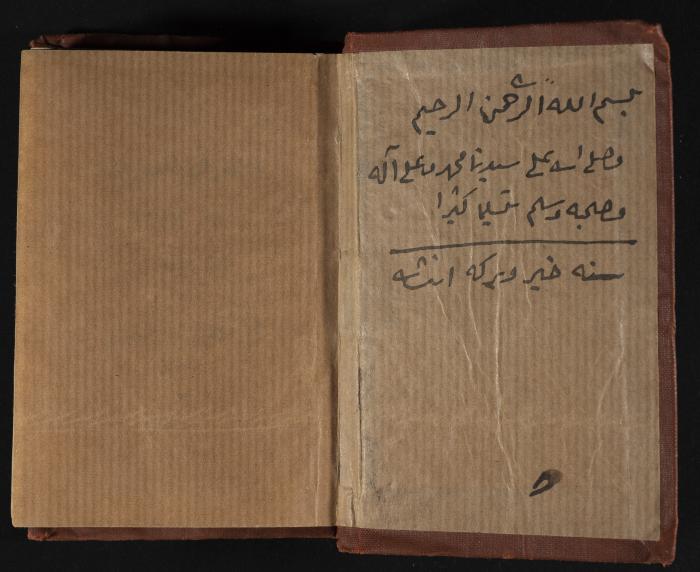 بسم الله الرحمن الرحيم
وصلى الله على سيدنا محمد وعلى آله
وصحبه وسلم تسليما كثيرا
سنه خير وبركه انشاء